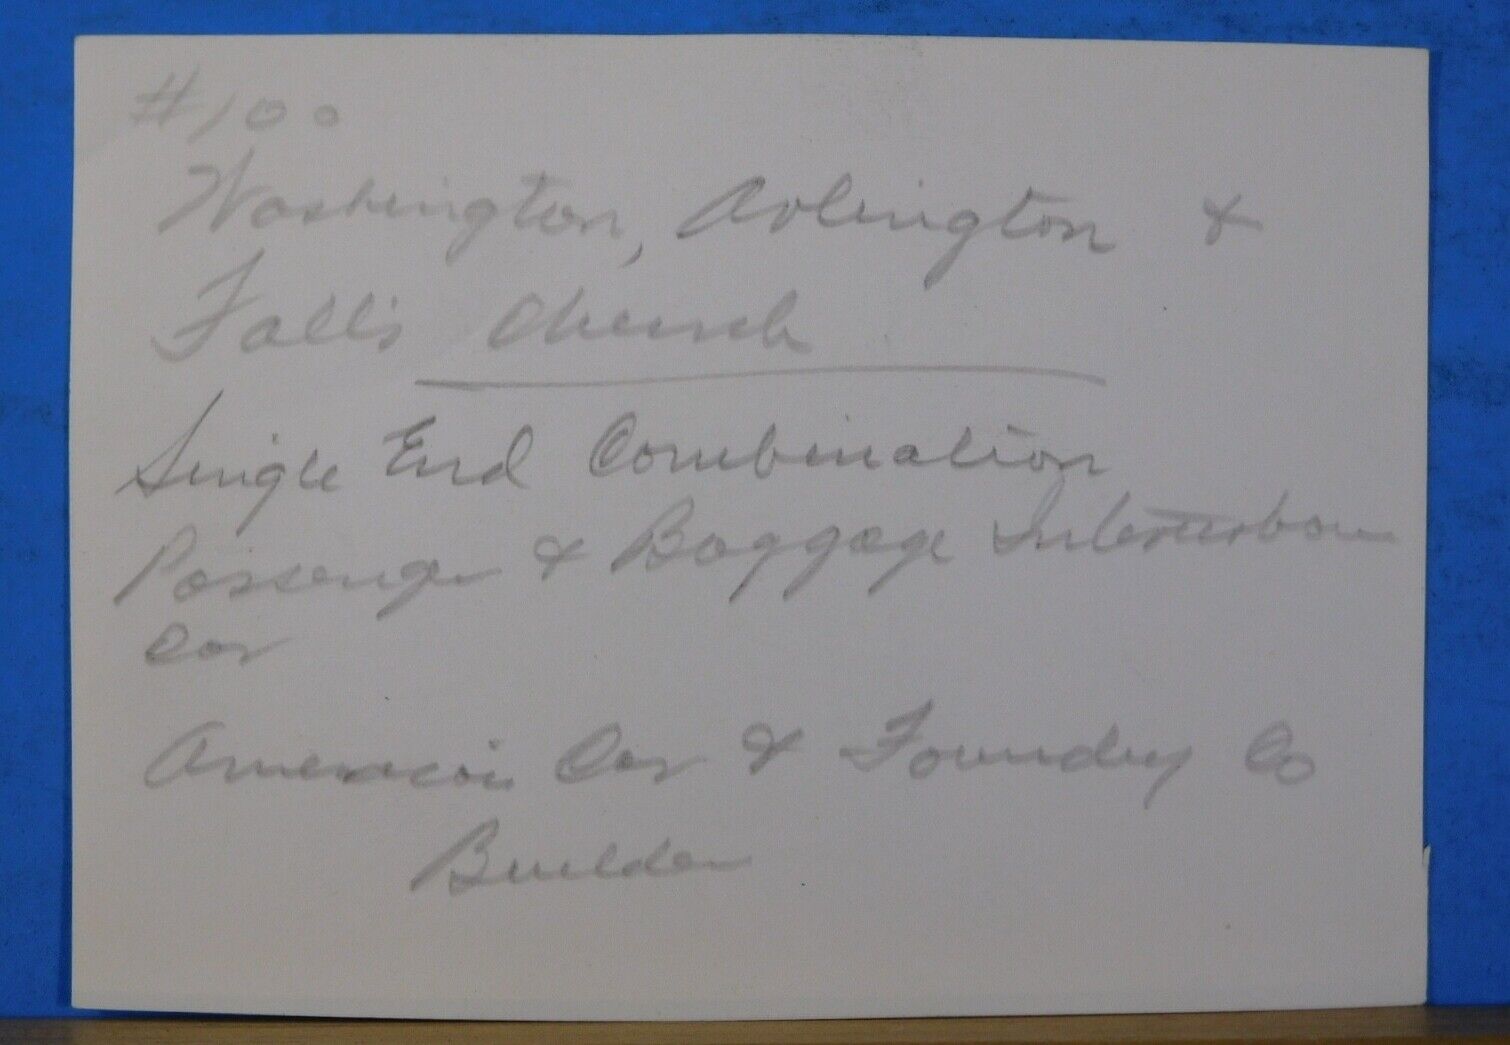 #100
Washington, Arlington &
Falls Church
Single End Combination
Passenger & Baggage Interurban
Car
American Car & Foundry Co
Builder